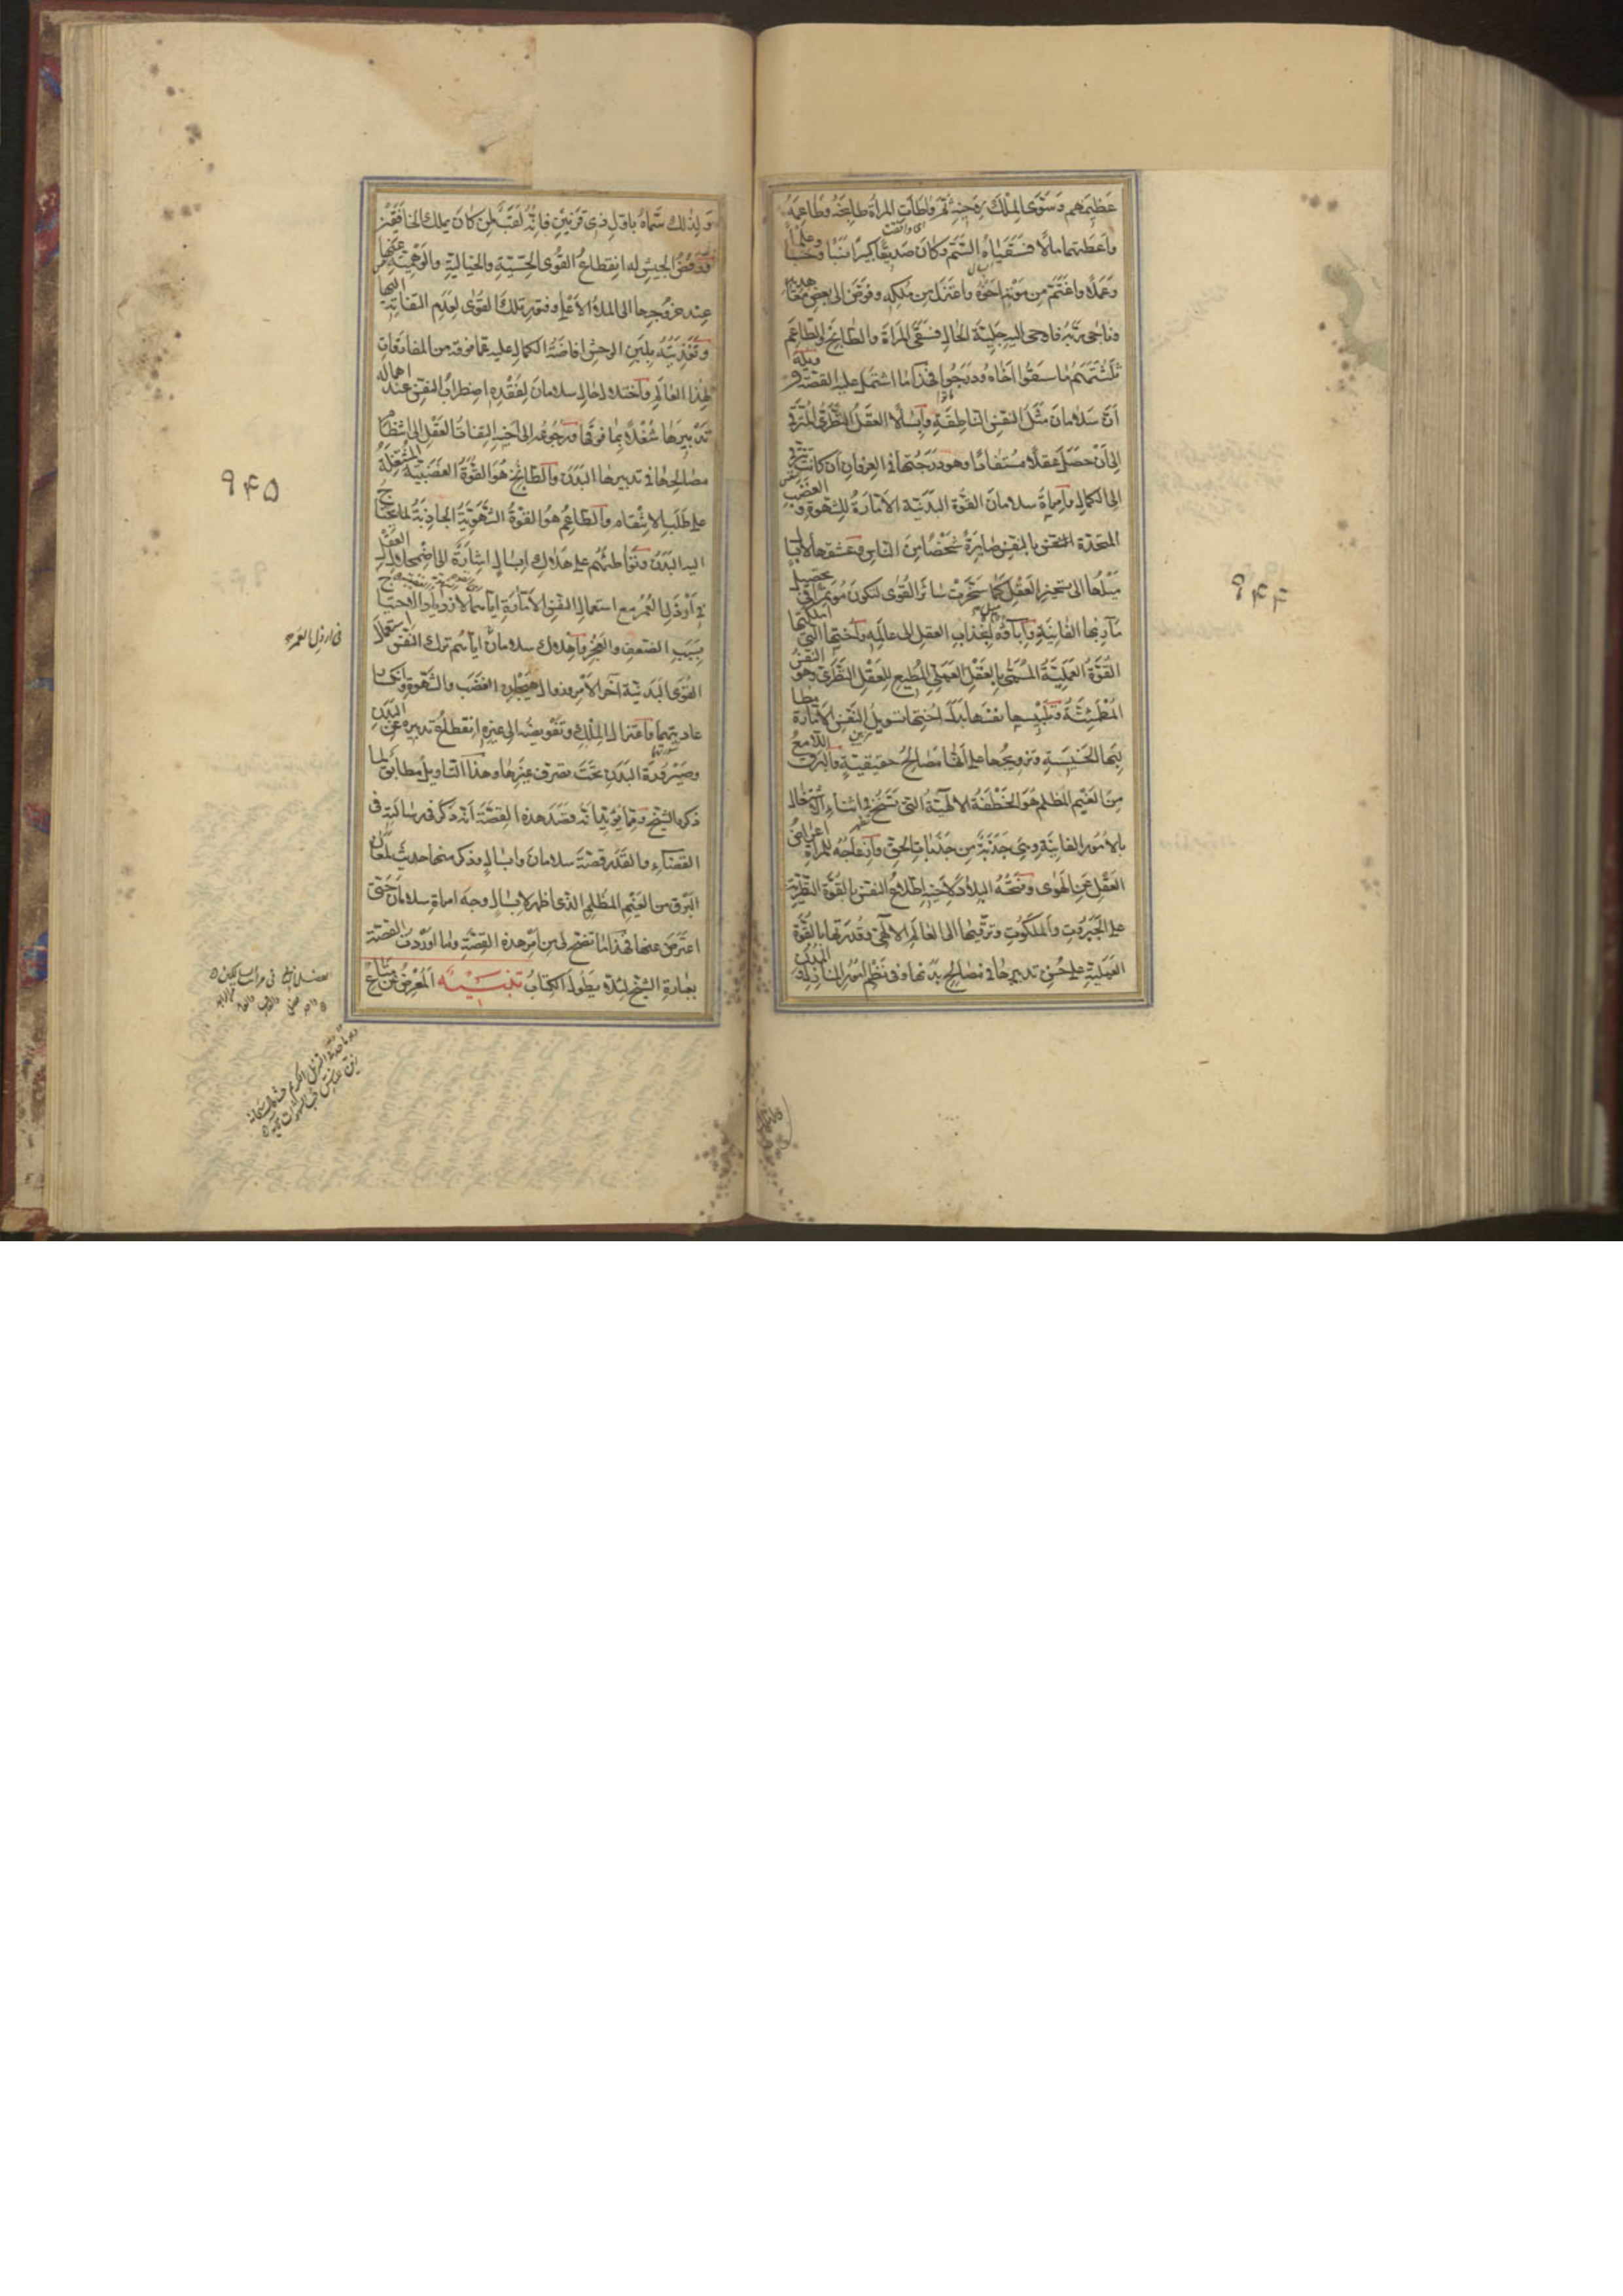 عظيمهم وسوى الملك رهنه ثم واطأت المرأة طابخه وطاعمه
اى وافقت
وأعطتهما مالا فسقياه السم وكان صديقا كبيرا نسبا وحسبا وعلما
وعملا واغتم من موته اخوه واعتزل من ملكه وفوض الى بعض معاهديه
وناجى ربه فاوحى اليه جلية الحال فسقى المرأة والطابخ والطاعم
ثلثتهم ما سقوا اخاه ودرجوا فهذا ما اشتمل عليه القصة وتأويله
أن سلامان مثل للنفس الناطقة وأبسالا للعقل النظرى المترقى
الى أن حصل عقلا مستفادا وهو درجتها فى العرفان ان كانت تترقى
الى الكمال وامرأة سلامان القوة البدنية الامارة للشهوة والغضب
المتحدة بالنفس صايرة شخصا من الناس وعشقها لابسال
ميلها الى تسخير العقل كما سخرت سائر القوى لتكون مؤتمرا فى تحصيل
مآربها الفانية وإباؤه انجذاب العقل الى عالمه وأختها التى املكتها
القوة العملية المسمى بالعقل العملى المطيع للعقل النظرى وهو النفس
المطمئنة وتلبيسها نفسها بدل اختها تسويل النفس الامارة مطالبها
الخسيسة وترويجها على أنها مصالح حقيقية والبرق اللامع
من الغيم المظلم هو الخطفة الالهية التى تسنح فى اثناء الاشتغال
بالامور الفانية وهى جذبة من جذبات الحق وازعاجه للمرأة اعراض
العقل عن الهوى وفتحه البلاد لاخيه اطلاع النفس بالقوة النظرية
على الجبروت والملكوت وترقيها الى العالم الالهى وقدرتها بالقوة
العملية على حسن تدبيرها فى مصالح بدنها وفى نظم امور المنازل والمدن
۹۴۴
ولذلك سماه باول ذى قرنين فانه لقب لمن كان يملك الخافقين
ورفض الجيش له انقطاع القوى الحسية والخيالية والوهمية عنها
عند عروجها الى الملأ الاعلى وفتور تلك القوى لعدم التفاته اليها
وتغذيته بلبن الوحش افاضة الكمال عليه عما فوقه من المفارقات
لهذا العالم واختلال حال سلامان لفقده اضطراب النفس عند اهماله
تدبيرها شغلا بما فوقها ورجوعه الى اخيه التفات العقل الى انتظام
مصالحها فى تدبيرها البدن والطابخ هو القوة الغضبية المشتعلة
على طلب الانتقام والطاعم هو القوة الشهوية الجاذبة لما يحتاج
اليه البدن وتواطئهم على هلاك ابسال اشارة الى اضمحلال العقل
فى أرذل العمر مع استعمال النفس الامارة اياهما لازدياد الاحتياج
بسبب الضعف والعجز واهلاك سلامان اياهم ترك النفس استعمال
القوى البدنية آخر الامر وزوال هيجان الغضب والشهوة وانكسار
عاديتهما واعتزاله الملك وتفويضه الى غيره انقطاع تدبيره عن البدن
وصيرورة البدن تحت تصرف غيرها وهذا التأويل مطابق لما
ذكره الشيخ ومما يؤيد انه قصد هذه القصة انه ذكر فى رسالته فى
القضاء والقدر قصة سلامان وابسال وذكر منها حديث لمعان
البرق من الغيم المظلم الذى اظهر لابسال وجه امرأة سلامان حتى
اعترض عنها فهذا ما تفتح لى من امر هذه القصة وما اوردت القصة
بعبارة الشيخ لئلا يطول الكتاب تنبيه المعرض عن متاع
۹۴۵
فى ارذل العمر